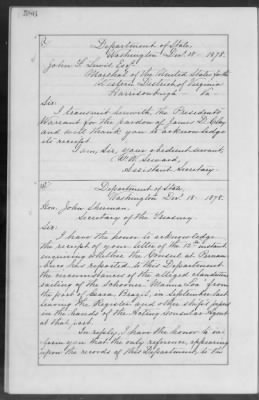 Department of State,
Washington Dec. 18 - 1878.
John F. Lewis, Esq.
Marshal of the United States for the
Western District of Virginia
Harrisonburgh - Va -
Sir:
I transmit herewith, the President's
Warrant for the pardon of James D.
and will thank you to acknowledge
its receipt.
I am, Sir, your obedient servant,
F. W. Seward,
Assistant Secretary.
Department of State,
Washington Dec. 18 - 1878.
Hon. John Sherman,
Secretary of the Treasury.
Sir:
I have the honor to acknowledge
the receipt of your letter of the 12th instant
enquiring whether the Consul at Pernam-
buco has reported to this Department
the circumstances of the alleged clandestine
sailing of the Schooner
the port of Ceara, Brazil, in September last
leaving the Register and other ship's papers
in the hands of the Acting Consular Agent
at that port.
In reply, I have the honor to in-
form you that the only reference appearing
upon the records of this Department, to the